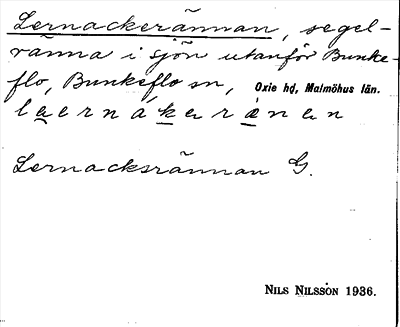 Lernackerännan, segel-
ränna i sjön utanför Bunke-
flo, Bunkeflo sn, Oxie hd, Malmöhus län.
laernákerenen
Lernacksrännan G.
NILS NILSSON 1936.